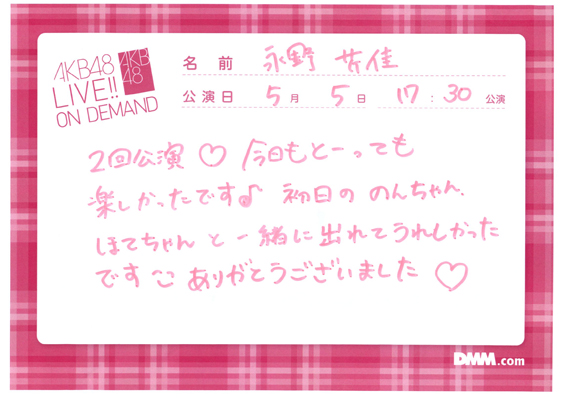 AKB48
LIVE!!
ON DEMAND
AKB
48
名前 永野 芹佳
公演日 5月 5日 17:30 公演
2回公演♡ 今日もとーっても
楽しかったです♪ 初日の のんちゃん、
ほてちゃん と 一緒に出れてうれしかった
です ありがとうございました ♡
DMM.com